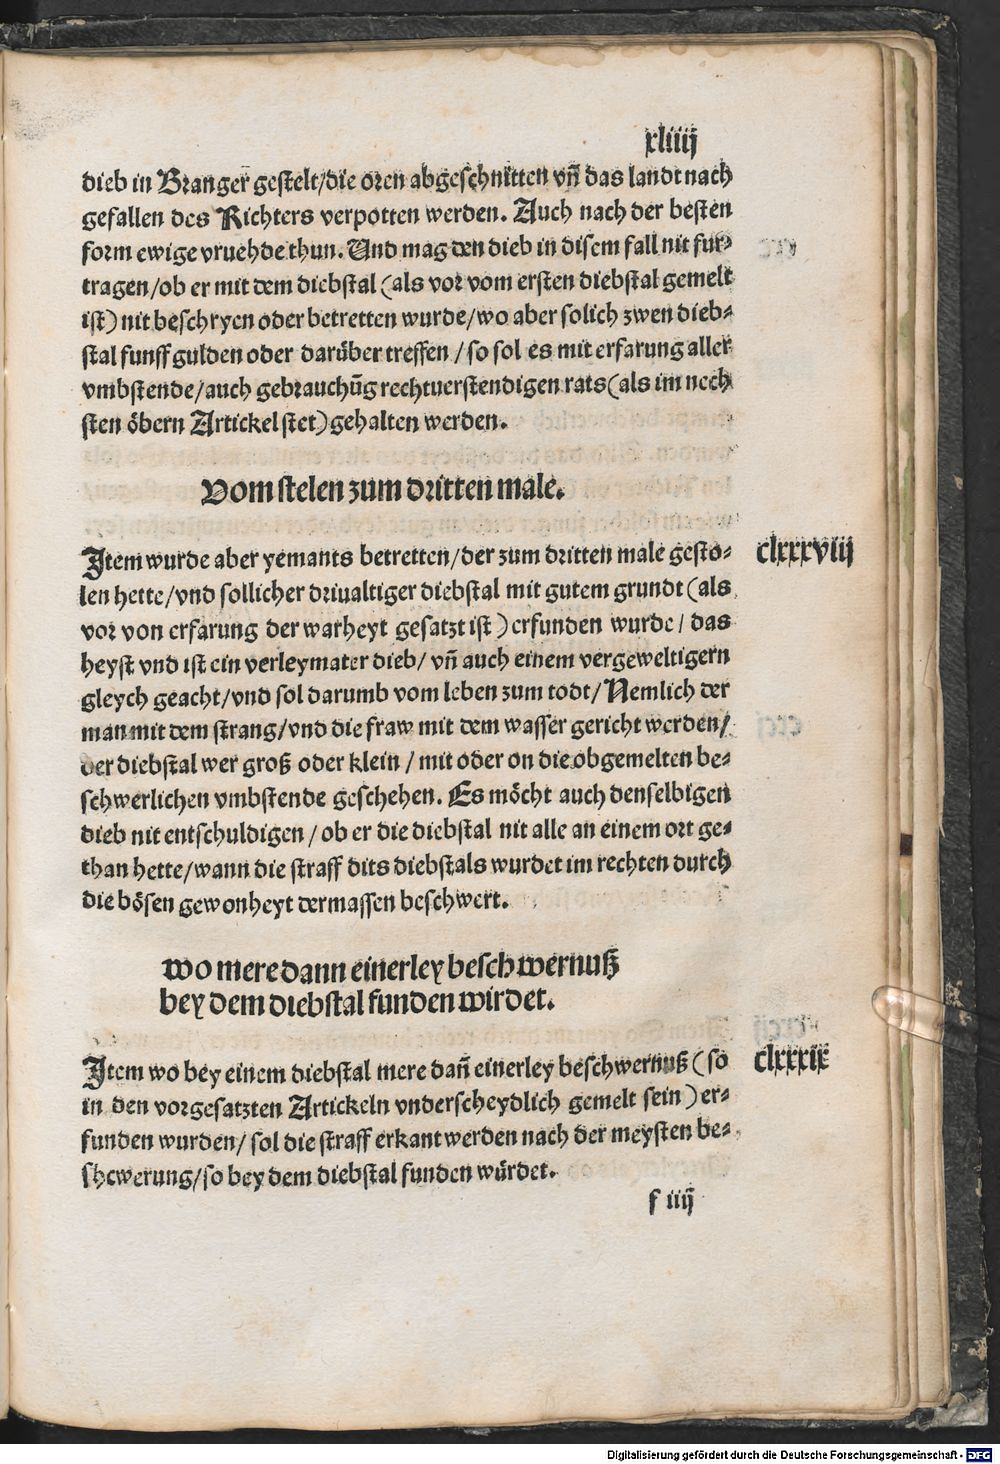 xliiij
dieb in Branger gestelt/die oren abgeschnitten vñ das landt nach
gefallen des Richters verpotten werden. Auch nach der besten
form ewige vruehde thun. Und mag den dieb in disem fall nit fur⸗
tragen/ob er mit dem diebstal (als vor vom ersten diebstal gemelt
ist) nit beschryen oder betretten wurde/wo aber solich zwen dieb⸗
stal funff gulden oder darüber treffen/so sol es mit erfarung aller
vmbstende/auch gebrauchūg rechtuerstendigen rats (als im nech
sten öbern Artickel stet) gehalten werden.
Vom stelen zum dritten male.
Item wurde aber yemants betretten/der zum dritten male gesto⸗
clxxxviij
len hette/vnd sollicher driualtiger diebstal mit gutem grundt (als
vor von erfarung der warheyt gesatzt ist) erfunden wurde/das
heyst vnd ist ein verleymater dieb/vñ auch einem vergeweltigern
gleych geacht/vnd sol darumb vom leben zum todt/Nemlich der
man mit dem strang/vnd die fraw mit dem wasser gericht werden/
der diebstal wer groß oder klein/mit oder on die obgemelten be⸗
schwerlichen vmbstende geschehen. Es möcht auch denselbigen
dieb nit entschuldigen/ob er die diebstal nit alle an einem ort ge⸗
than hette/wann die straff dits diebstals wurdet im rechten durch
die bösen gewonheyt dermassen beschwert.
wo mere dann einerley beschwernuß
bey dem diebstal funden wirdet.
Item wo bey einem diebstal mere dañ einerley beschwernuß (so
clxxxix
in den vorgesatzten Artickeln vnderscheydlich gemelt sein) er⸗
funden wurden/sol die straff erkant werden nach der meysten be⸗
shcwerung/so bey dem diebstal funden würdet.
f iiij
Digitalisierung gefördert durch die Deutsche Forschungsgemeinschaft - DFG